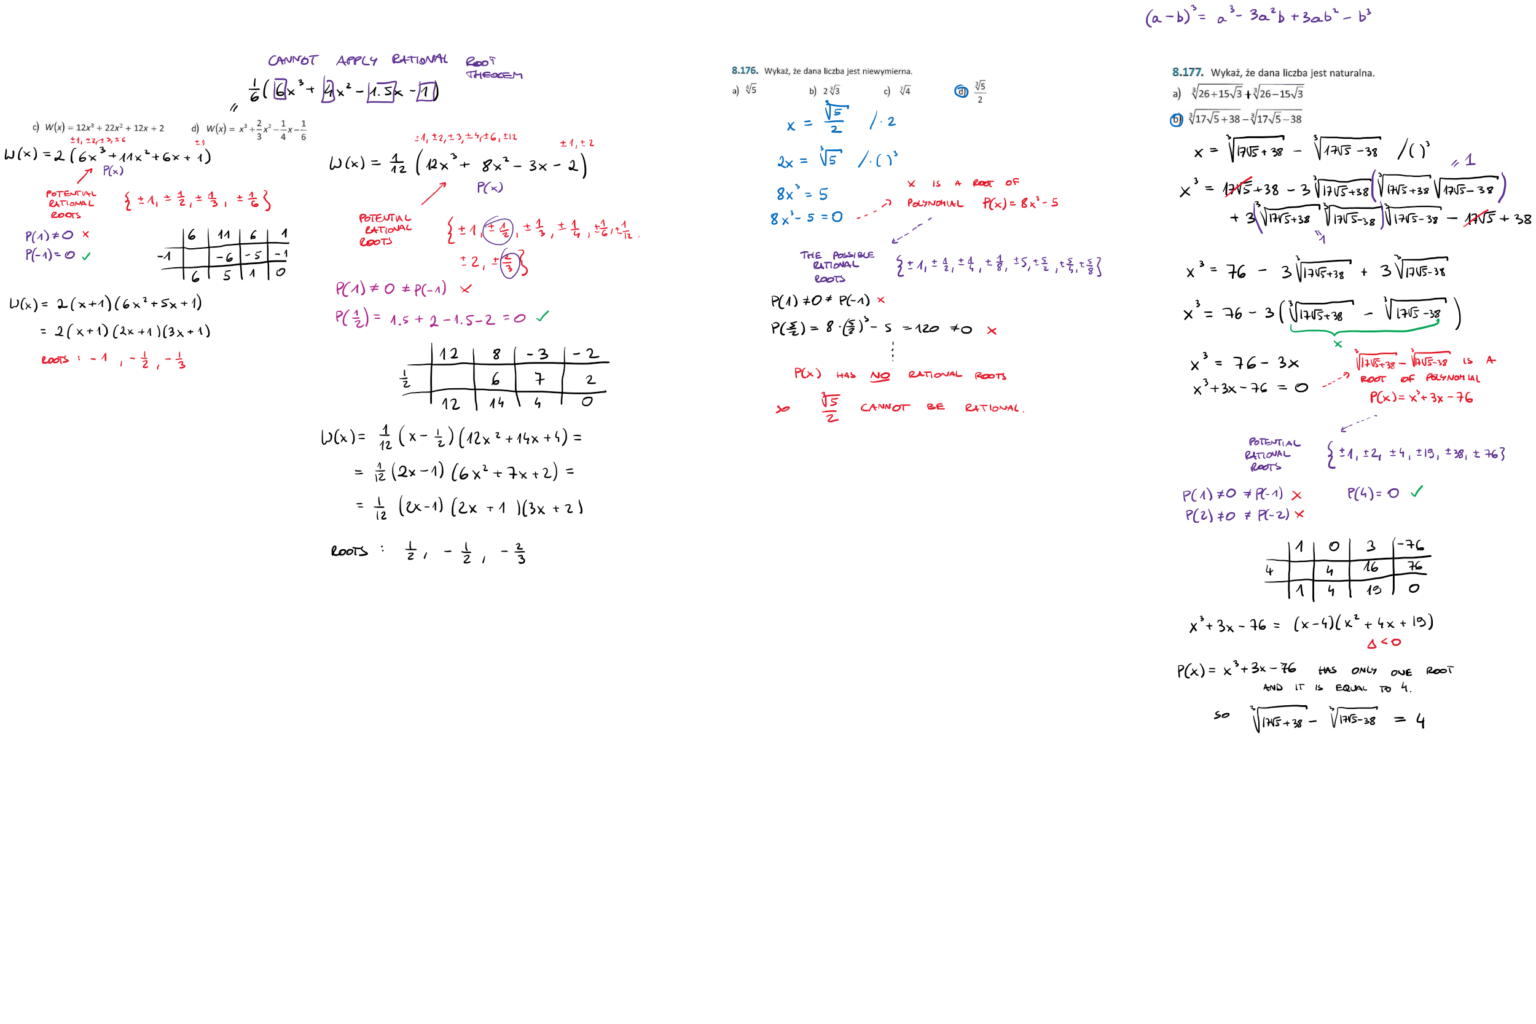 (a-b)³ = a³ - 3a²b + 3ab² - b³
CANNOT APPLY RATIONAL ROOT
THEOREM
= 1/6 (6x³ + 4x² - 1.5x - 1)
c) W(x) = 12x³ + 22x² + 12x + 2
d) W(x) = x³ + 2/3 x² - 1/4 x - 1/6
±1, ±2, ±3, ±6
±1
W(x) = 2(6x³ + 11x² + 6x + 1)
P(x)
POTENTIAL
RATIONAL
ROOTS
{±1, ±1/2, ±1/3, ±1/6}
P(1) ≠ 0 ×
P(-1) = 0 ✓
6 11 6 1
-1 -6 -5 -1
6 5 1 0
W(x) = 2(x+1)(6x²+5x+1)
= 2(x+1)(2x+1)(3x+1)
ROOTS: -1, -1/2, -1/3
±1, ±2, ±3, ±4, ±6, ±12
±1, ±2
W(x) = 1/12 (12x³ + 8x² - 3x - 2)
P(x)
POTENTIAL
RATIONAL
ROOTS
{±1, ±1/2, ±1/3, ±1/4, ±1/6, ±1/12,
±2, ±2/3}
P(1) ≠ 0 ≠ P(-1) ×
P(1/2) = 1.5 + 2 - 1.5 - 2 = 0 ✓
12 8 -3 -2
1/2 6 7 2
12 14 4 0
W(x) = 1/12 (x - 1/2)(12x² + 14x + 4) =
= 1/12 (2x-1)(6x² + 7x + 2) =
= 1/12 (2x-1)(2x + 1)(3x + 2)
ROOTS: 1/2, -1/2, -2/3
8.176. Wykaż, że dana liczba jest niewymierna.
a) ∛5 b) 2∛3 c) ∛4 d) ∛5/2
x = ∛5/2 /·2
2x = ∛5 /·( )³
8x³ = 5
8x³ - 5 = 0
X IS A ROOT OF
POLYNOMIAL P(x) = 8x³ - 5
THE POSSIBLE
RATIONAL
ROOTS
{±1, ±1/2, ±1/4, ±1/8, ±5, ±5/2, ±5/4, ±5/8}
P(1) ≠ 0 ≠ P(-1) ×
P(5/2) = 8·(5/2)³ - 5 = 120 ≠ 0 ×
P(x) HAS NO RATIONAL ROOTS
SO ∛5/2 CANNOT BE RATIONAL.
8.177. Wykaż, że dana liczba jest naturalna.
a) ∛(26+15√3) + ∛(26-15√3)
b) ∛(17√5+38) - ∛(17√5-38)
x = ∛(17√5+38) - ∛(17√5-38) /( )³
= 1
x³ = 17√5+38 - 3∛(17√5+38) (∛(17√5+38) ∛(17√5-38))
+ 3(∛(17√5+38) ∛(17√5-38)) ∛(17√5-38) - 17√5 + 38
= 1
x³ = 76 - 3∛(17√5+38) + 3∛(17√5-38)
x³ = 76 - 3(∛(17√5+38) - ∛(17√5-38))
x
x³ = 76 - 3x
x³ + 3x - 76 = 0
∛(17√5+38) - ∛(17√5-38) IS A
ROOT OF POLYNOMIAL
P(x) = x³ + 3x - 76
POTENTIAL
RATIONAL
ROOTS
{±1, ±2, ±4, ±19, ±38, ±76}
P(1) ≠ 0 ≠ P(-1) × P(4) = 0 ✓
P(2) ≠ 0 ≠ P(-2) ×
1 0 3 -76
4 4 16 76
1 4 19 0
x³ + 3x - 76 = (x-4)(x² + 4x + 19)
Δ < 0
P(x) = x³ + 3x - 76 HAS ONLY ONE ROOT
AND IT IS EQUAL TO 4.
SO ∛(17√5+38) - ∛(17√5-38) = 4